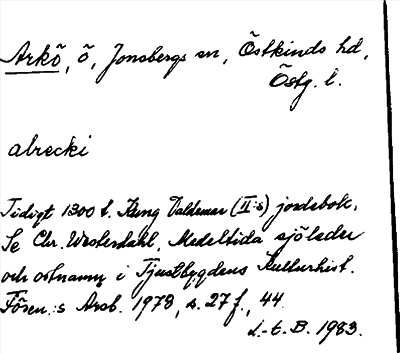 Arkö, ö, Jonsbergs sn, Östkinds hd,
Östg. l.
abrecki
Tidigt 1300 t. Kung Valdemar (II:s) jordebok.
Se Chr. Westerdahl, Medeltida sjöleder
och ortnamn i Tjustbygdens Kulturhist.
Fören:s Årsb. 1978, s. 27 f., 44.
L-E. B. 1983.